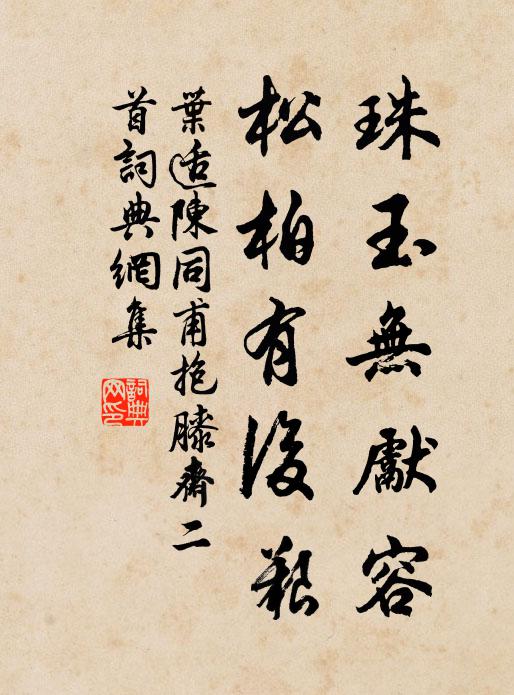 珠玉無獻容
松柏有後艱
葉適陳同甫抱膝齋二
首詞典網集
詞典
网印